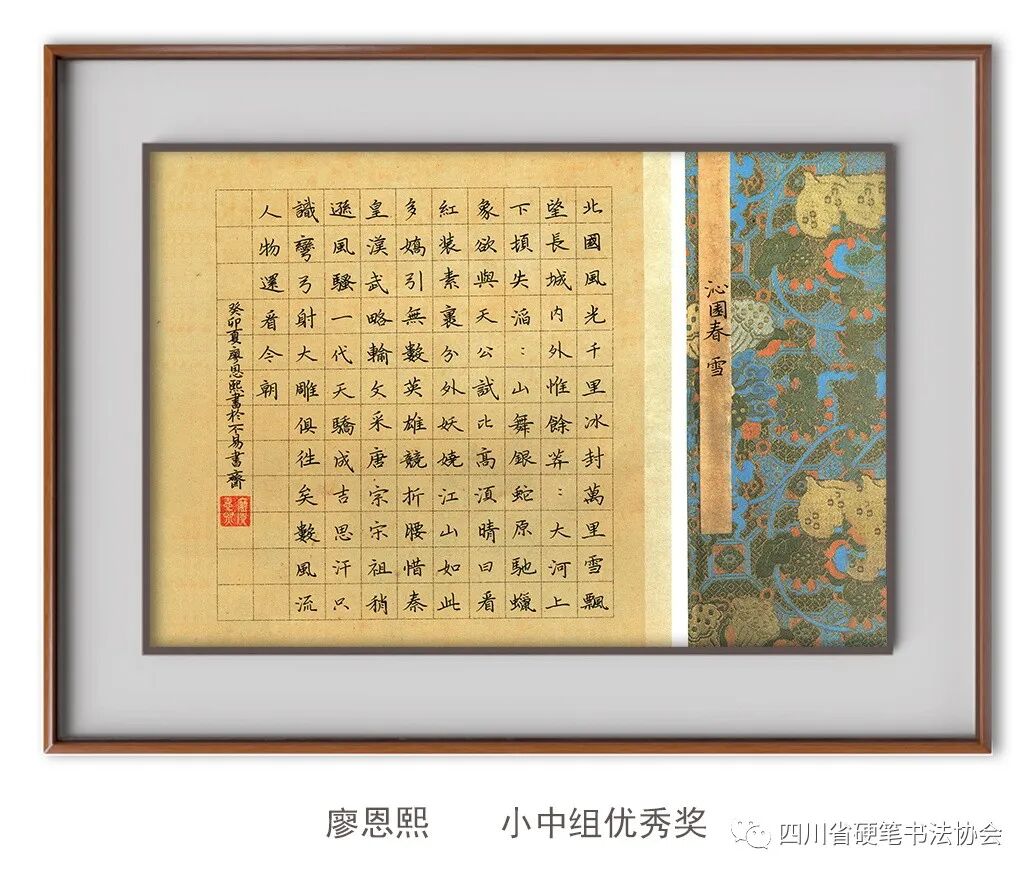 沁園春 雪
北國風光千里冰封萬里雪飄
望長城内外惟餘莽：大河上
下頓失滔：山舞銀蛇原馳蠟
象欲與天公試比高須晴日看
紅装素裹分外妖嬈江山如此
多嬌引無數英雄競折腰惜秦
皇漢武略輸文采唐宗宋祖稍
遜風騷一代天驕成吉思汗只
識彎弓射大雕俱往矣數風流
人物還看今朝
癸卯夏廖恩熙書於不易書齋
廖恩熙 小中组优秀奖
四川省硬笔书法协会